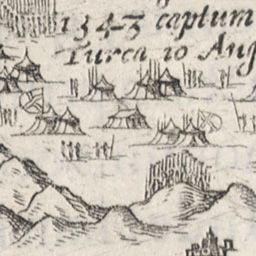 1543 captum
Turca 10 Aug